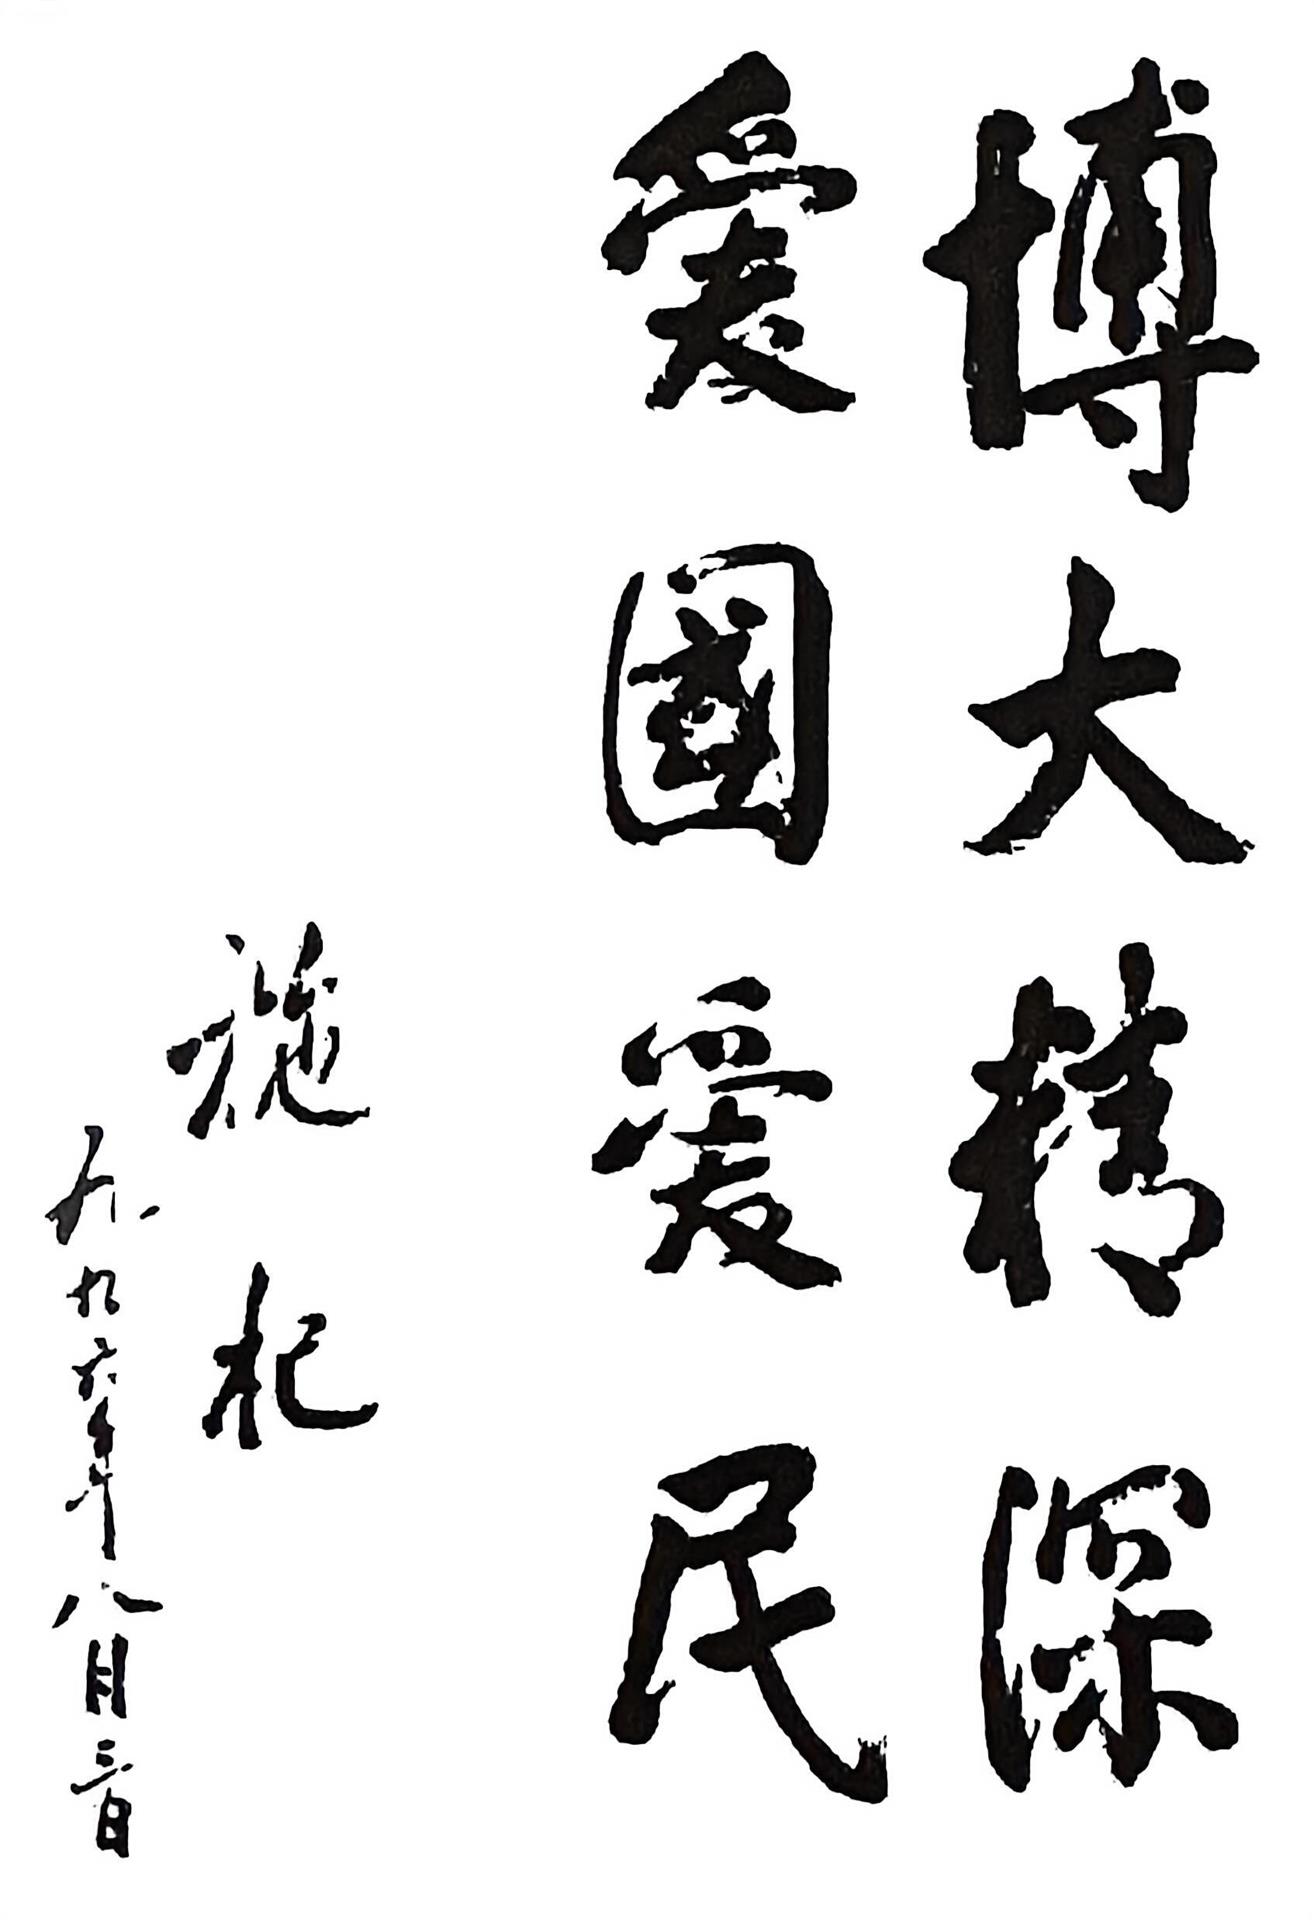 博大精深
愛國愛民
施杞
九九六年八月三日